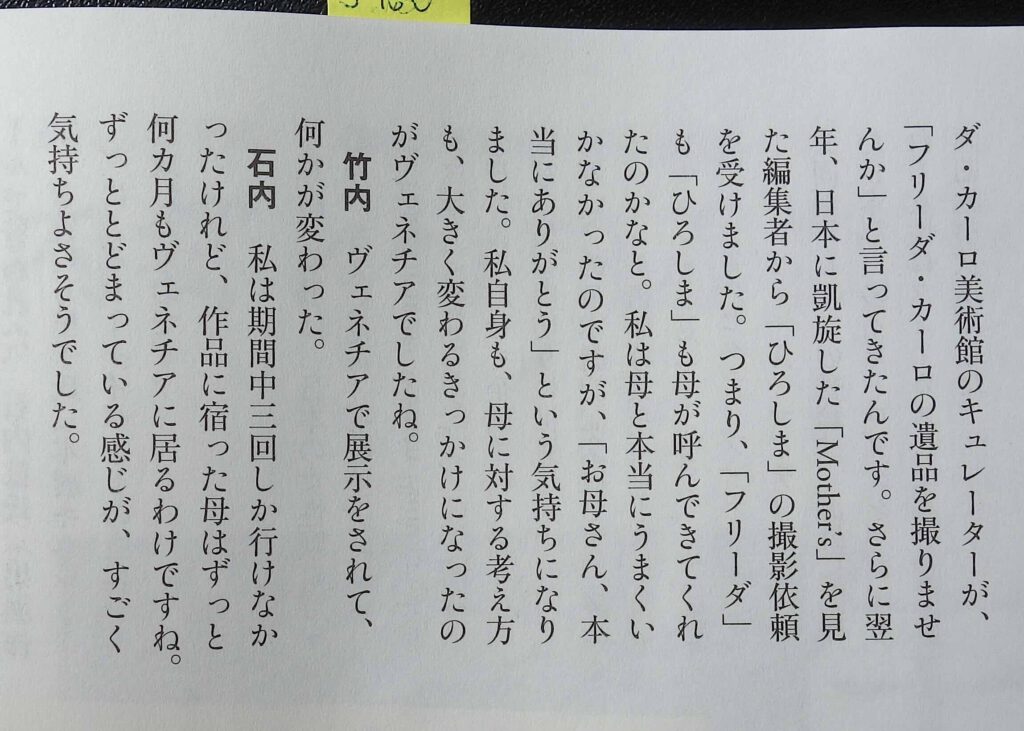 ダ・カーロ美術館のキュレーターが、
「フリーダ・カーロの遺品を撮りませ
んか」と言ってきたんです。さらに翌
年、日本に凱旋した「Mother's」を見
た編集者から「ひろしま」の撮影依頼
を受けました。つまり、「フリーダ」
も「ひろしま」も母が呼んできてくれ
たのかなと。私は母と本当にうまくい
かなかったのですが、「お母さん、本
当にありがとう」という気持ちになり
ました。私自身も、母に対する考え方
も、大きく変わるきっかけになったの
がヴェネチアでしたね。
竹内　ヴェネチアで展示をされて、
何かが変わった。
石内　私は期間中三回しか行けなか
ったけれど、作品に宿った母はずっと
何カ月もヴェネチアに居るわけですね。
ずっととどまっている感じが、すごく
気持ちよさそうでした。